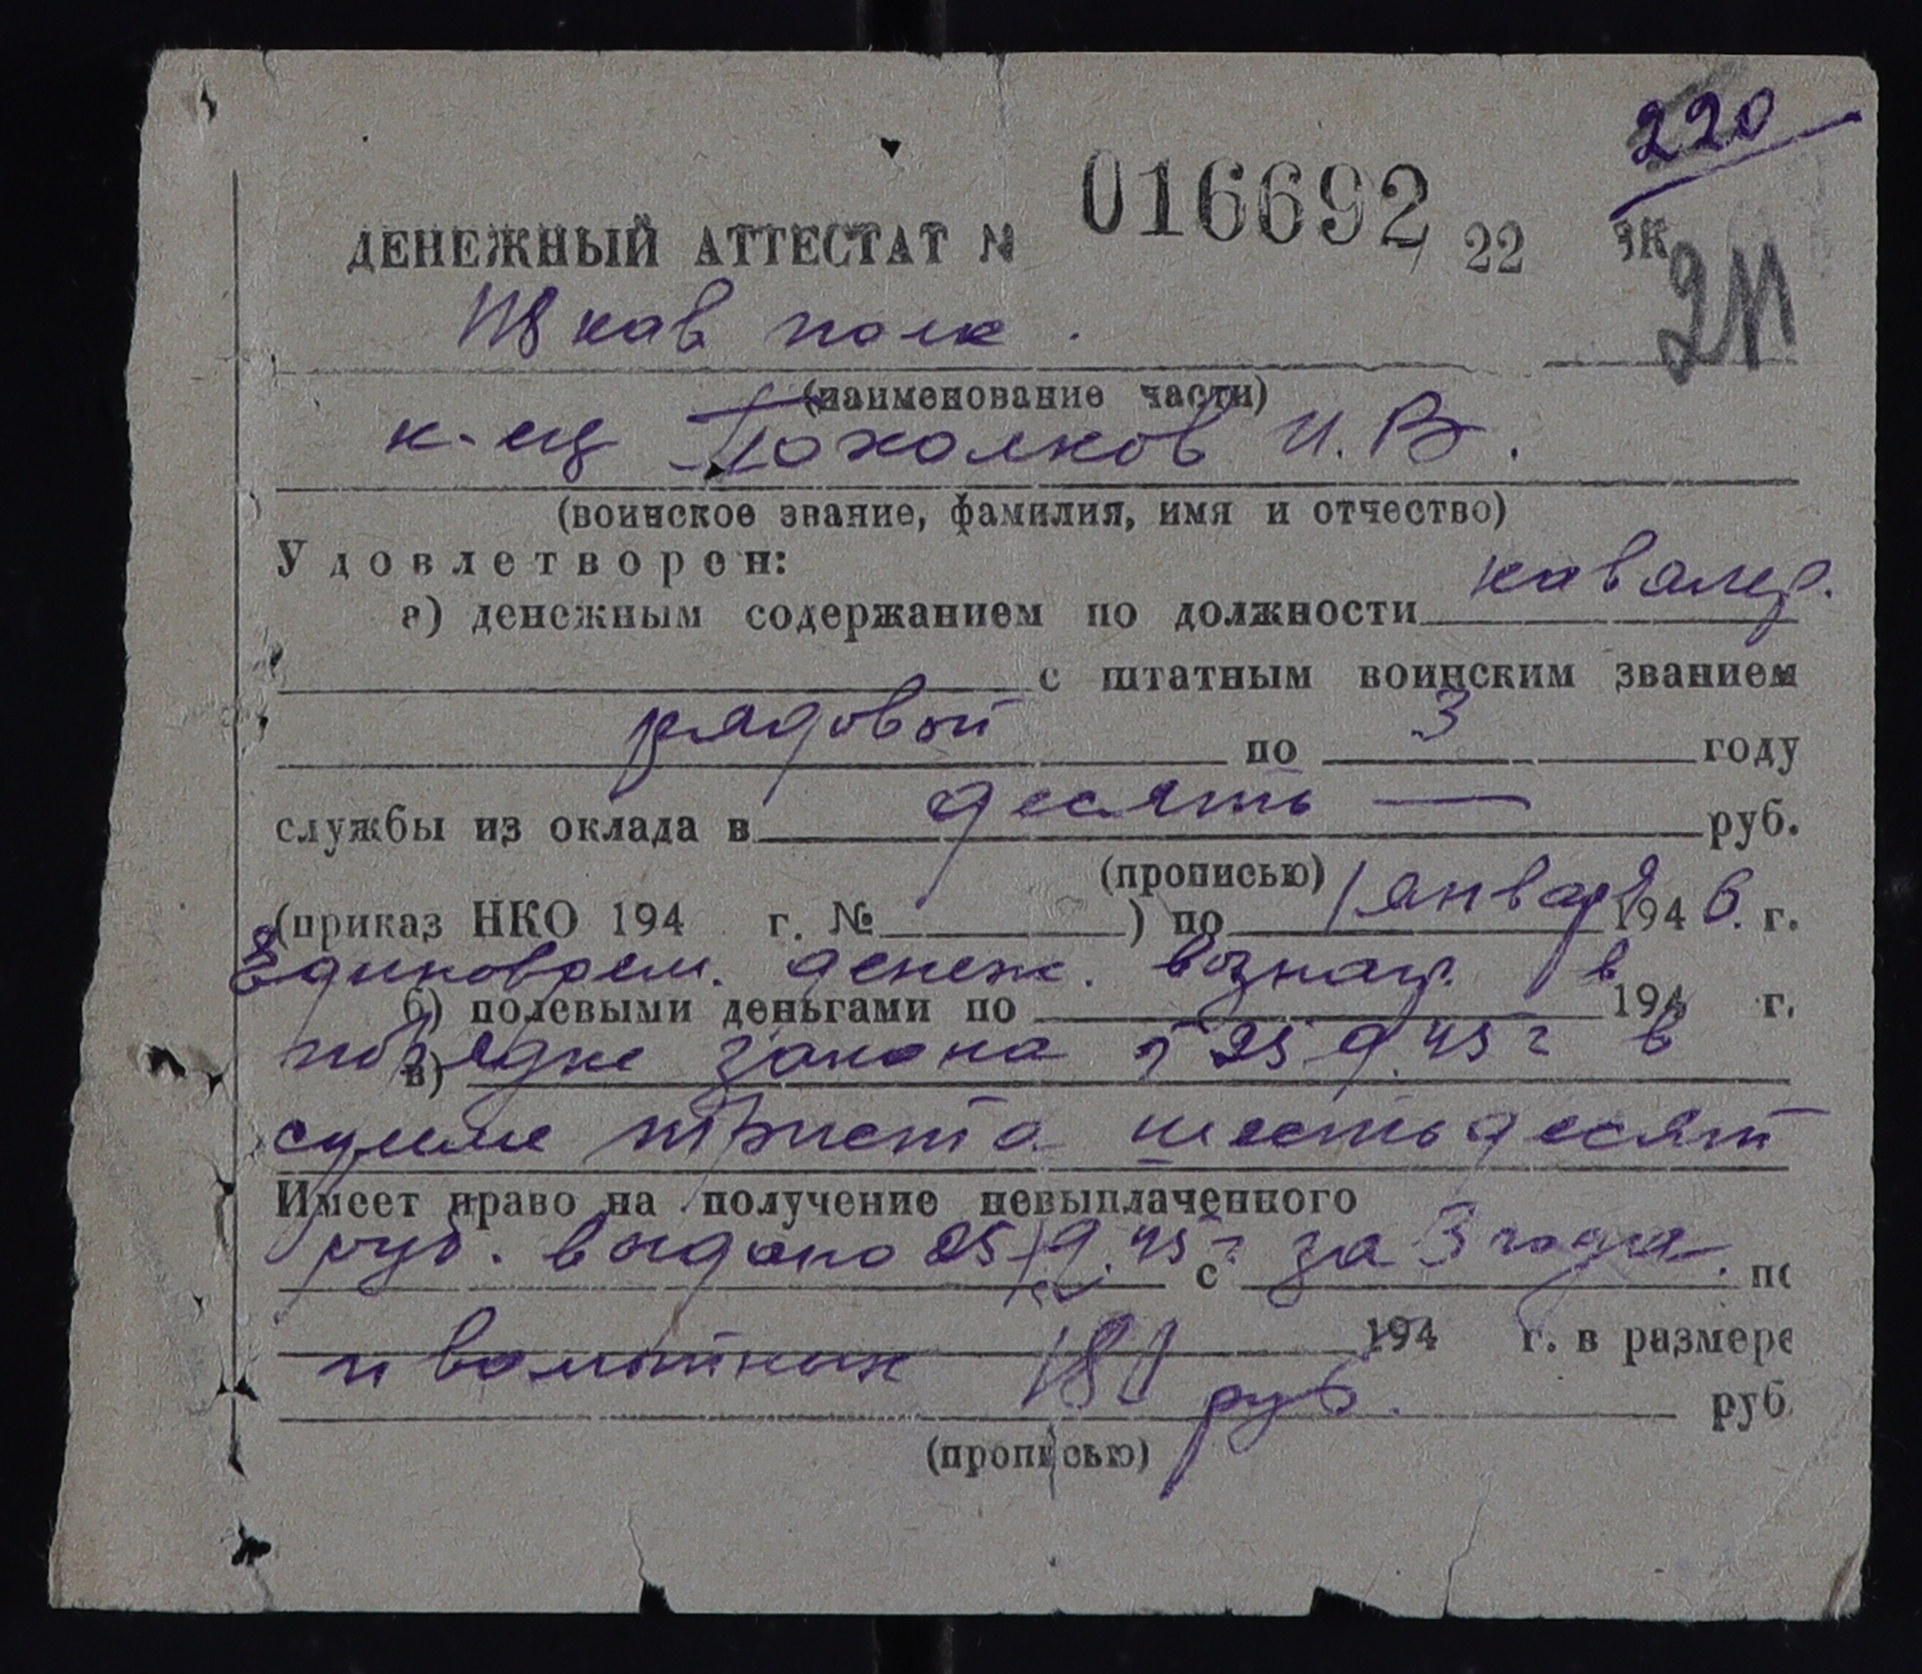 220
ДЕНЕЖНЫЙ АТТЕСТАТ № 016692 22 ЯК
211
кав полк.
(наименование части)
к-ец Похолков И. В.
(воинское звание, фамилия, имя и отчество)
Удовлетворен:
а) денежным содержанием по должности кавалер.
с штатным воинским званием
рядовой по 3 году
службы из оклада в десять — руб.
(прописью)
(приказ НКО 194 г. № ) по 1 января 1946. г.
Единоврем. денеж. вознагр. в
б) полевыми деньгами по 194 г.
порядке закона от 25.9.45 г в
в)
сумме триста шестьдесят
Имеет право на получение невыплаченного
руб. выдано 25.9.45 г за 3 года.
с по
194 г. в размере
180 руб.
руб.
(прописью)